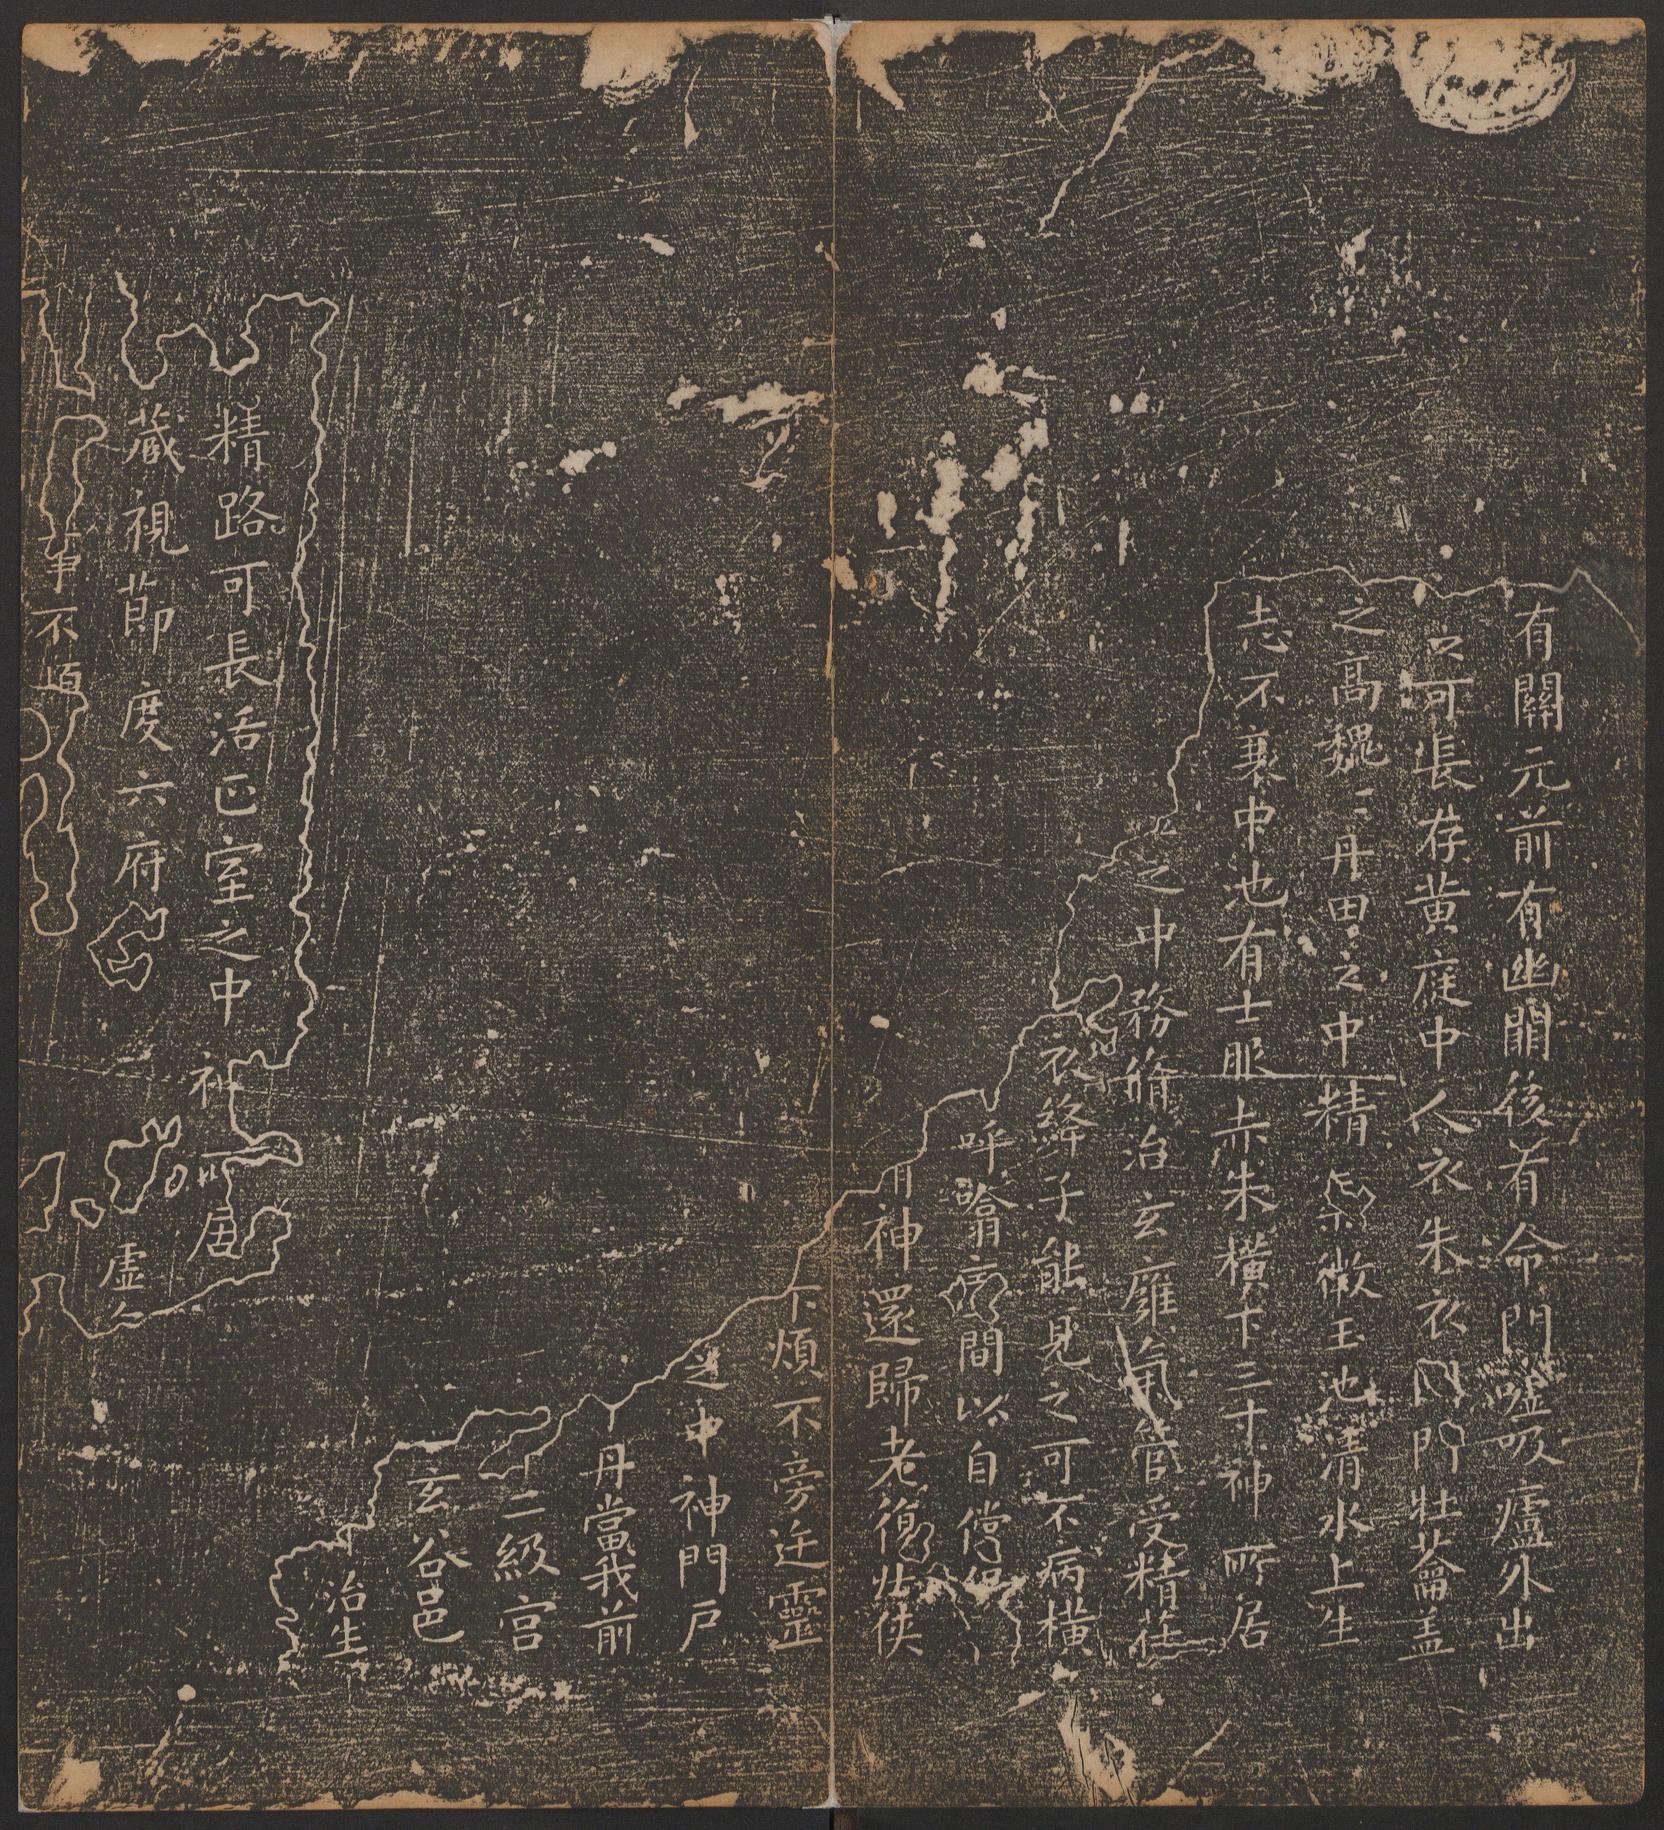 有關元前有幽闕後有命門噓吸廬外出
可長存黃庭中人衣朱衣門牡蘥盖
之高巍〻丹田之中精氣微玉池清水上生
志不衰中池有士服赤朱橫下三寸神所居
之中務脩治玄廱氣管受精符
衣絳子能見之可不病橫
呼噏間以自償
神還歸老復壯俠
下煩不旁迕靈
道中神門戶
丹當我前
二級宮
玄谷邑
治生
精路可長活正室之中神所居
藏視節度六府虛
事不